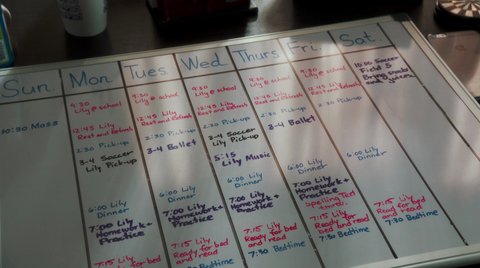 Sun.
Mon.
Tues.
Wed.
Thurs.
Fri.
Sat.
10:30 Mass
9:30
Lily @ school
12:45 Lily
Rest and Refresh
2:30 Pick-up
3-4 Soccer
Lily Pick-up
6:00 Lily
Dinner
7:00 Lily
Homework +
Practice
7:15 Lily
Ready for bed
and read
9:30
Lily @ school
12:45 Lily
Rest and Refresh
2:30 Pick-up
3-4 Ballet
6:00 Lily
Dinner
7:00 Lily
Homework +
Practice
7:15 Lily
Ready for bed
and read
7:30 Bedtime
9:30
Lily @ school
12:45 Lily
Rest and Refresh
2:30 Pick-up
3-4 Soccer
Lily Pick-up
5:15
Lily Music
6:00 Lily
Dinner
7:00 Lily
Homework +
Practice
7:15 Lily
Ready for bed
and read
7:30 Bedtime
9:30
Lily @ school
12:45 Lily
Rest and Refresh
2:30 Pick-up
3-4 Ballet
6:00 Lily
Dinner
7:00 Lily
Homework +
Practice
Spelling Test
7:15 Lily
Ready for bed
and read
7:30 Bedtime
9:30
Lily @ school
12:45 Lily
Rest and Refresh
2:30 Pick-up
6:00 Lily
Dinner
7:15 Lily
Ready for bed
and read
7:30 Bedtime
10:00 Soccer
Field 5
Bring snacks
and juices
6:00 Lily
Dinner
7:15 Lily
Read for bed
and read
7:30 Bedtime